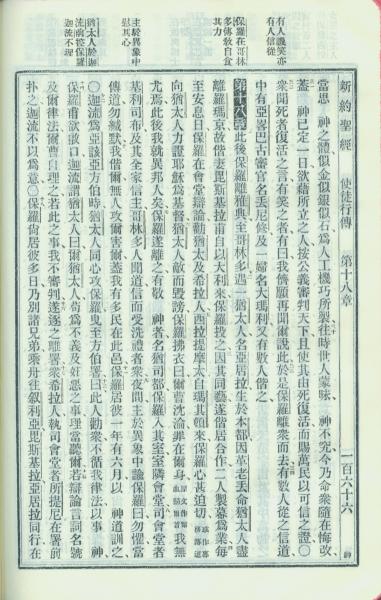 新約聖經　使徒行傳　第十八章　一百六十六
有人譏笑亦
有人信從
保羅在哥林
多傳敎自食
其力
主於異象中
慰其心
猶太人於迦
流前控保羅
迦流不理
當思　神之體似金似銀似石爲人工機巧所製往時世人蒙昧　神不究今乃命衆隨在悔改
蓋　神已定一日欲藉所立之人按公義審判天下且使其由死復活而賜萬民以可信之證〇
衆聞死者復活之言有笑之者有曰我儕願再聞爾說此於是保羅離衆而去有數人從之信道
中有亞畧巴古審官名丟尼修及一婦名大瑪利又有數人偕之
第十八章此後保羅離雅典至哥林多遇一猶太人名亞居拉生於本都因革老丟命猶太人盡
離羅瑪京故偕妻毘斯基拉甫自以大利來保羅投之因其同藝遂偕居合作二人製幕爲業每
至安息日保羅在會堂辯論勸猶太及希拉人西拉提摩太自瑪其頓來保羅心甚迫切或作專務傳道
向猶太人力證耶穌爲基督猶太人敵而毀謗保羅拂衣曰爾曹沈淪罪在爾身原文作爾血歸爾首我無
尤焉此後我就異邦人矣保羅遂離之有敬　神者名猶司都保羅入其室室隣會堂司會堂者
基利司布及其全家信主哥林多人聞道信而受洗禮者衆夜間主於異象中謂保羅曰勿懼當
傳道勿緘默我偕爾無人攻爾害爾蓋我有多民在此邑保羅居彼一年有六月以　神道訓之
〇迦流爲亞該亞方伯時猶太人同心攻保羅曳至方伯署曰此人勸衆不循我律法以事　神
保羅甫欲啟口迦流謂猶太人曰爾猶太人苟爲不義及奸惡之事理當聽爾若辯論言詞名號
及爾律法爾曹自理之若此之事我不審判遂逐之離署衆希拉人執司會堂者所提尼在署前
扑之迦流不以爲意〇保羅尚居彼多日乃別諸兄弟乘舟往敘利亞毘斯基拉亞居拉同行在